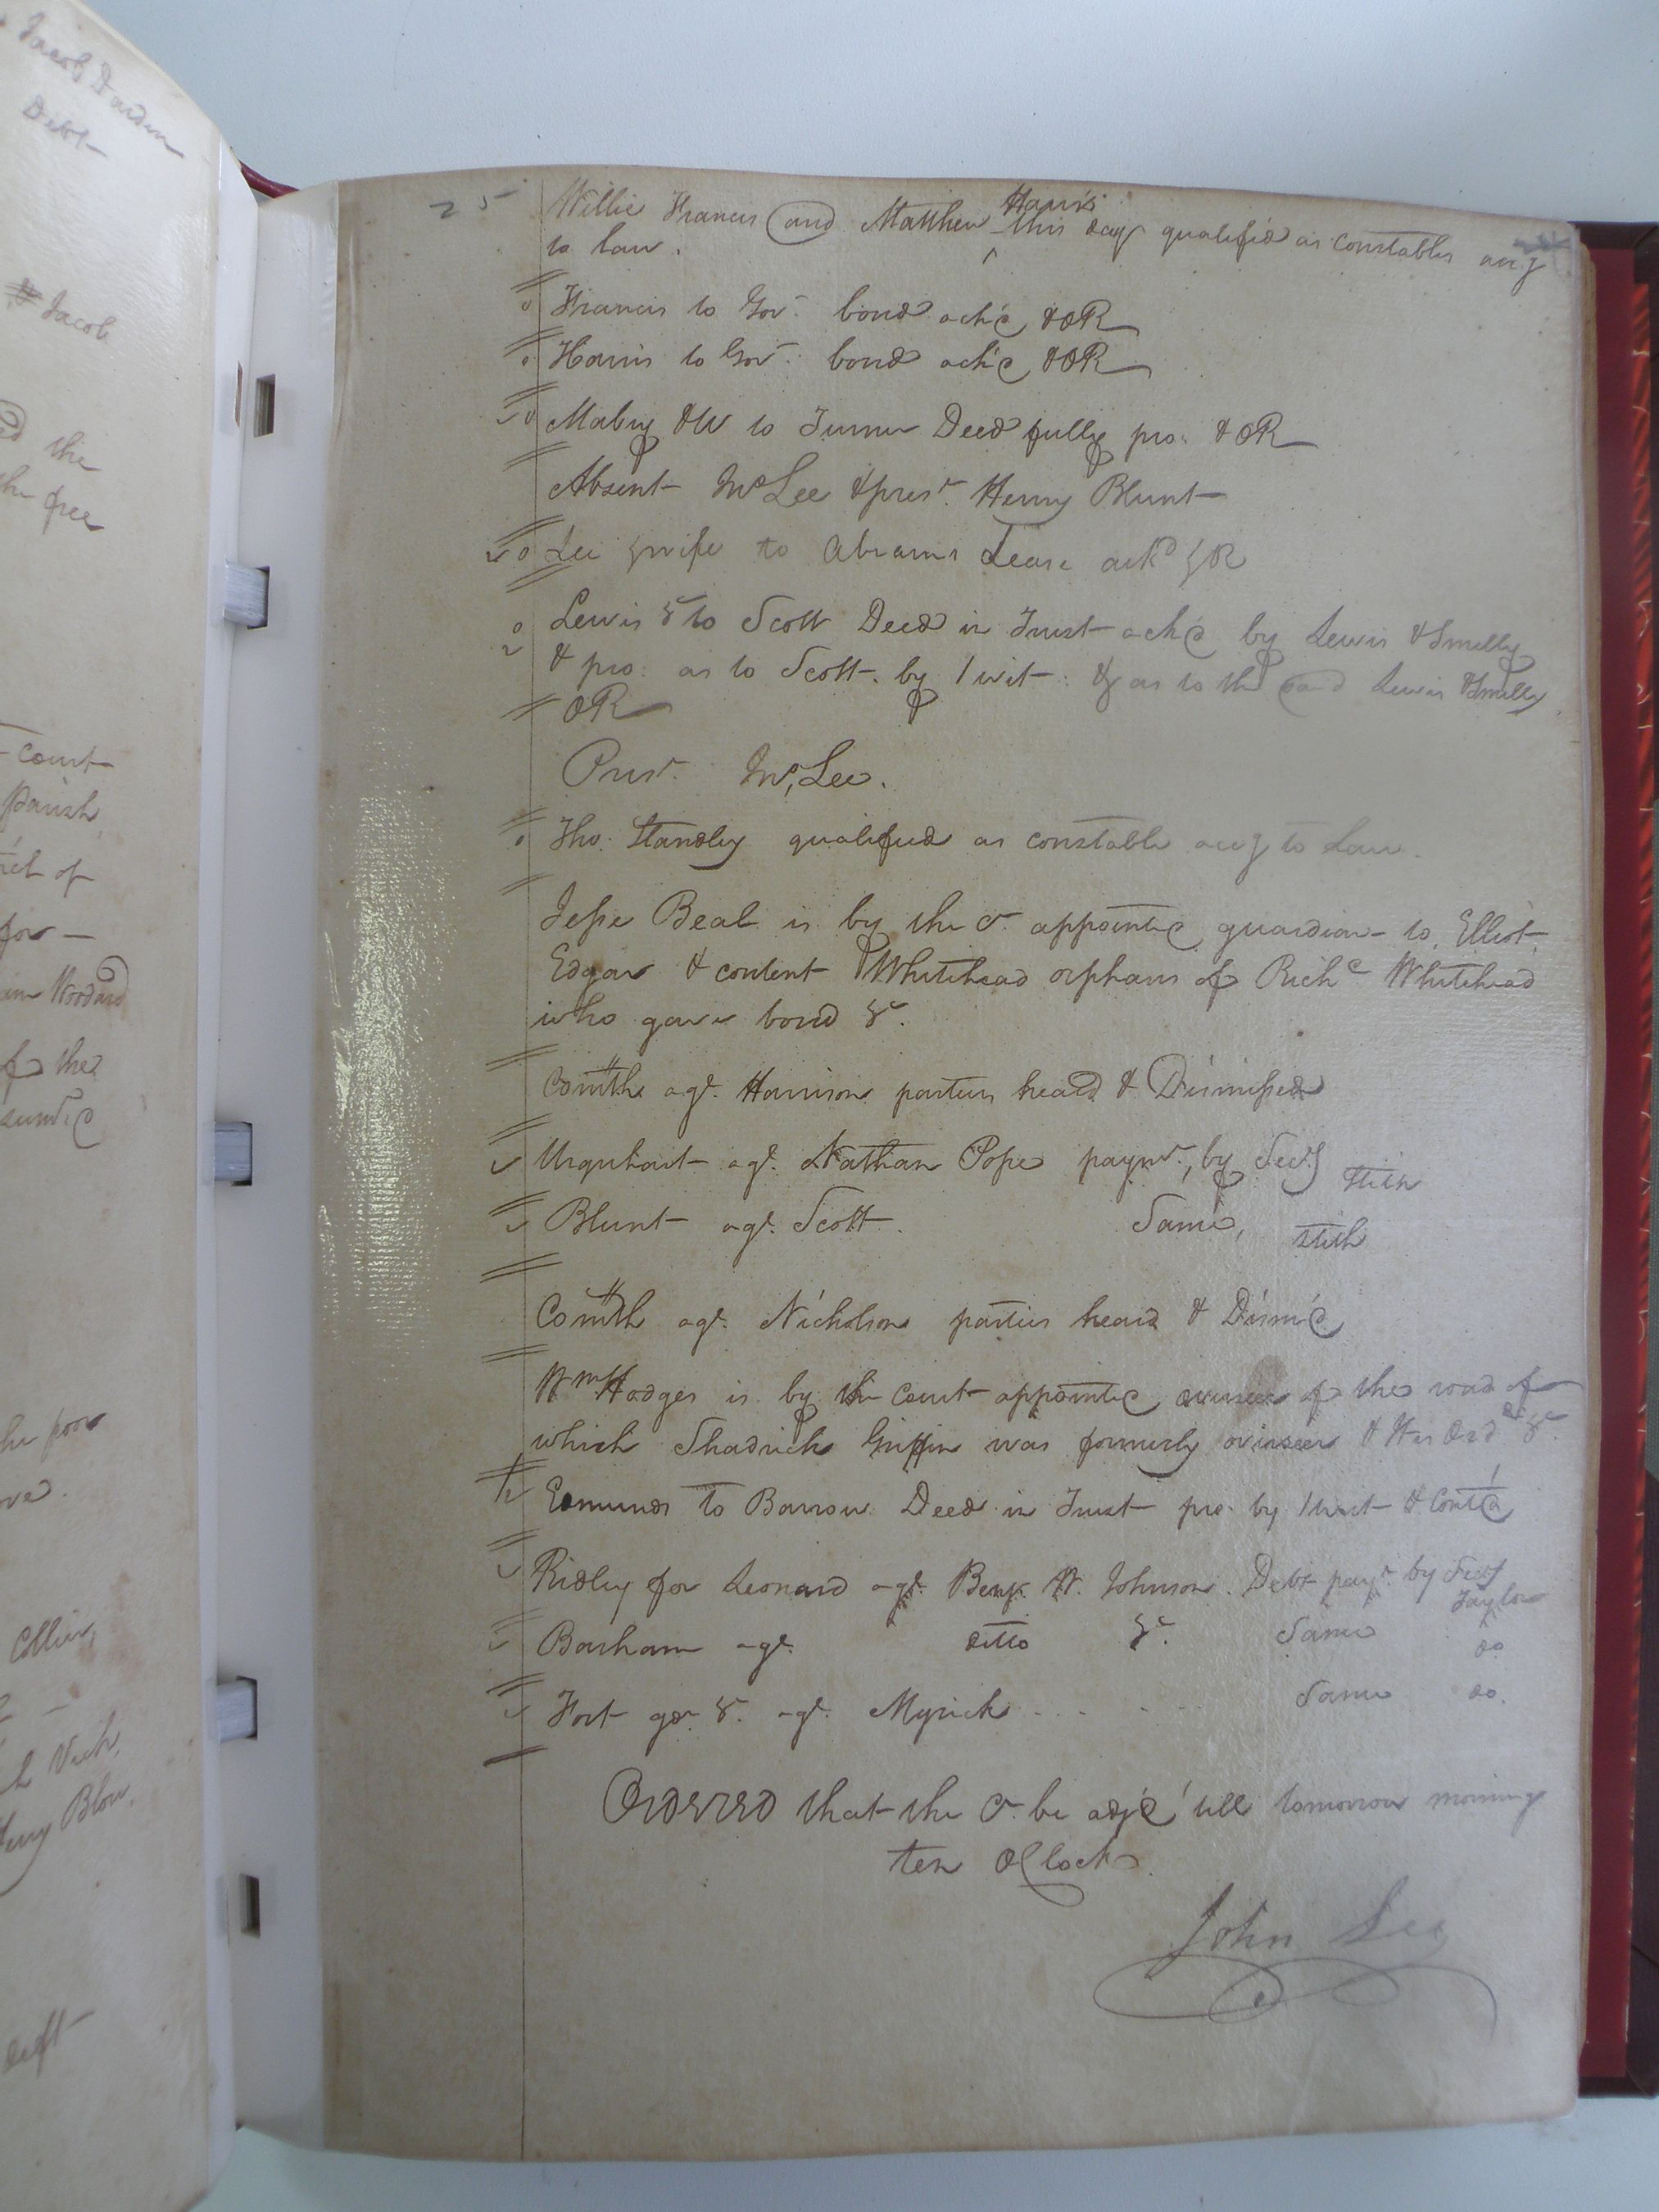 Jacob Darden
Debt
Jacob
the
free
Court
Parish
of
for
Woodard
of the
the poor
Collier,
Blow.
deft
25
Willie Francis and Matthew Harris this day qualified as constables accg
to law.
Francis to Gov: bond ack'd & OR
Harris to Gov: bond ack'd & OR
Mabry & W to Turner Deed fully pro: & OR
Absent Mr Lee & prest. Henry Blunt
Lee & wife to Abrams Lease ackd & R
Lewis &c to Scott Deed in Trust ack'd by Lewis & Smelly
& pro: as to Scott. by 1 wit: & as to the said Lewis & Smelly
OR
Prest. Mr. Lee.
Tho: Standley qualified as constable accg to Law.
Jesse Beal is by the Ct. appointed guardian to Elliot,
Edgar & content Whitehead orphans of Richd Whitehead
who gave bond &c.
Comth agt. Harrison parties heard & Dismissed
Urquhart agt. Nathan Pope paymt, by Secy Stith
Blunt agt. Scott. Same, Stith
Comth agt. Nicholson parties heard & Dism'd
Wm Hodges is by the Court appointed overseer of the road of
which Shadrich Griffin was formerly overseer & Ord &c.
Edmunds to Barrow Deed in Trust pro by 1 wit & Cont'd
Ridley for Leonard agt. Benj. W. Johnson. Debt payt. by Secy Taylor
Barham agt. ditto &c. Same do
Fort gdn &c. agt. Myrick . . . . . Same do.
Ordered that the Ct. be adj'd till tomorrow morning
ten O Clock.
John Lee